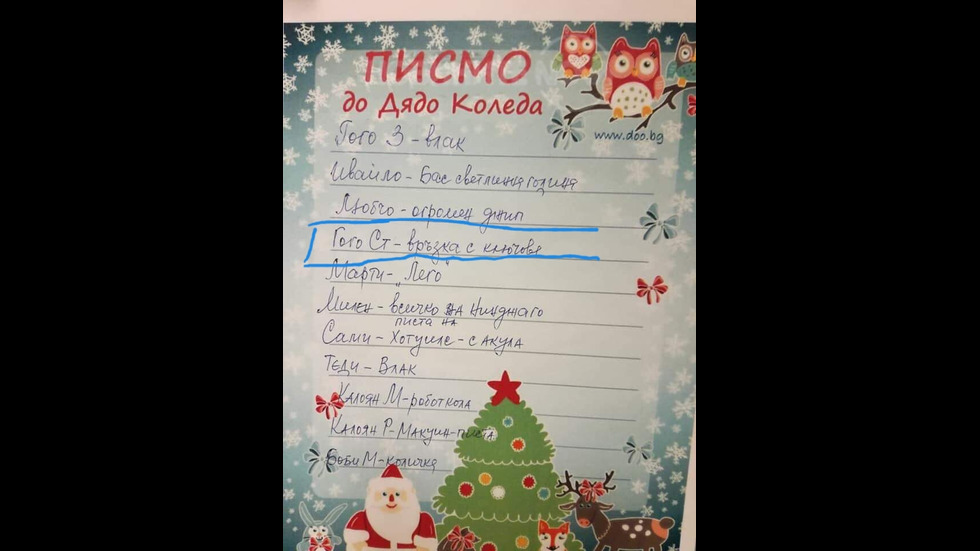 ПИСМО
до Дядо Коледа
www.doo.bg
Гого З - влак
Ивайло - Бас светлинна година
Любчо - огромен джип
Гого Ст - връзка с ключове
Марти - "Лего"
Милен - всичко на Нинджаго
писта на
Сами - Хотуилс - с акула
Теди - Влак
Калоян М - робот кола
Калоян Р - Макуин - писта
Боби М - количка